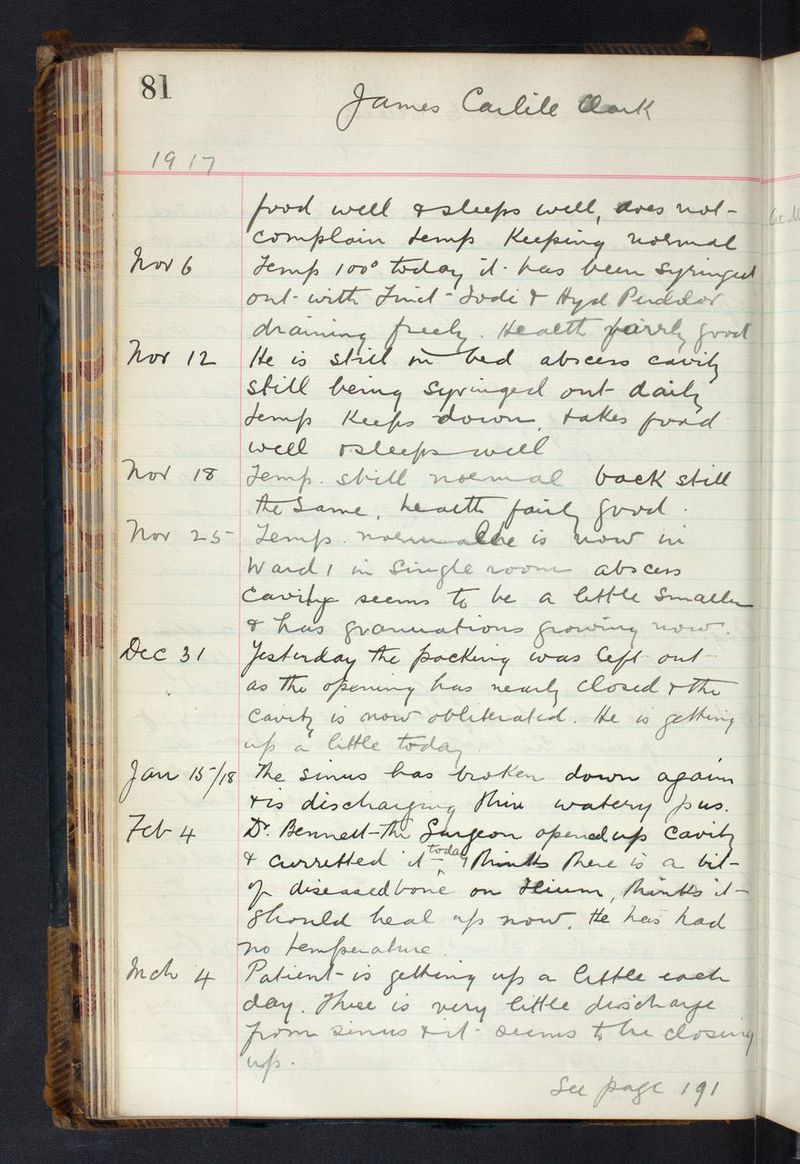 81
James Carlile Clark
1917
food well & sleeps well, does not
complain temp keeping normal
Nov 6 Temp 100° today it has been syringed
out with Tinct Iodi & Hyd
draining freely. Health fairly good
Nov 12 He is still in bed abscess cavity
still being syringed out daily
temp keeps down, takes food
well & sleeps well
Nov 18 Temp. still normal back still
the same, health fairly good.
Nov 25 Temp. normal he is now in
Ward 1 in single room abscess
cavity seems to be a little smaller
& has granuations growing now.
Dec 31 Yesterday the packing was left out
as the opening has nearly closed & the
cavity is now obliterated. He is getting
up a little today.
Jan 15/18 The sinus has broken down again
& is discharging thin watery pus.
Feb 4 Dr. Bennett the Surgeon opened up cavity
& curretted it today thinks there is a bit
of diseased bone on Ilium, thinks it
should heal up now. He has had
no temperature.
Mch 4 Patient is getting up a little each
day. There is very little discharge
from sinus & it seems to be closing
up.
See page 191